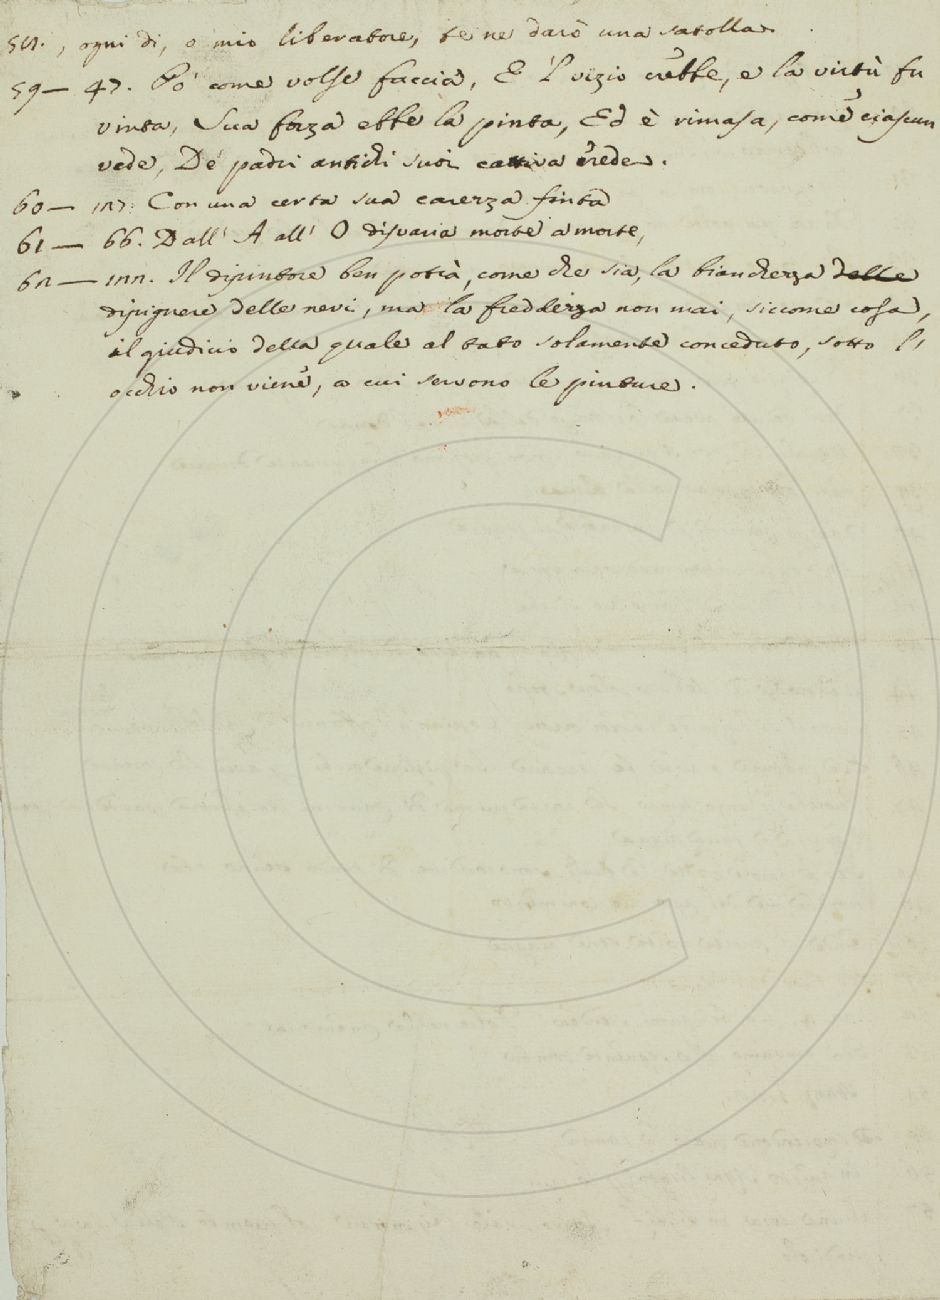 58. , ogni dì, o mio liberatore, te ne darò una satolla.
59 — 47. Po' come volse faccia, E 'l vizio crebbe, e la virtù fu
vinta, Sua forza ebbe la pinta, Ed è rimasa, come ciascun
vede, De' padri antichi suoi cattiva erede.
60 — 127. Con una certa sua carezza finta
61 — 66. Dall' A all' O disvaria morte a morte,
62 — 122. Il dipintore ben potrà, come che sia, la bianchezza delle
dipignere delle nevi, ma la freddezza non mai, siccome cosa,
il giudicio della quale al tatto solamente conceduto, sotto l'
occhio non viene, a cui servono le pinture.